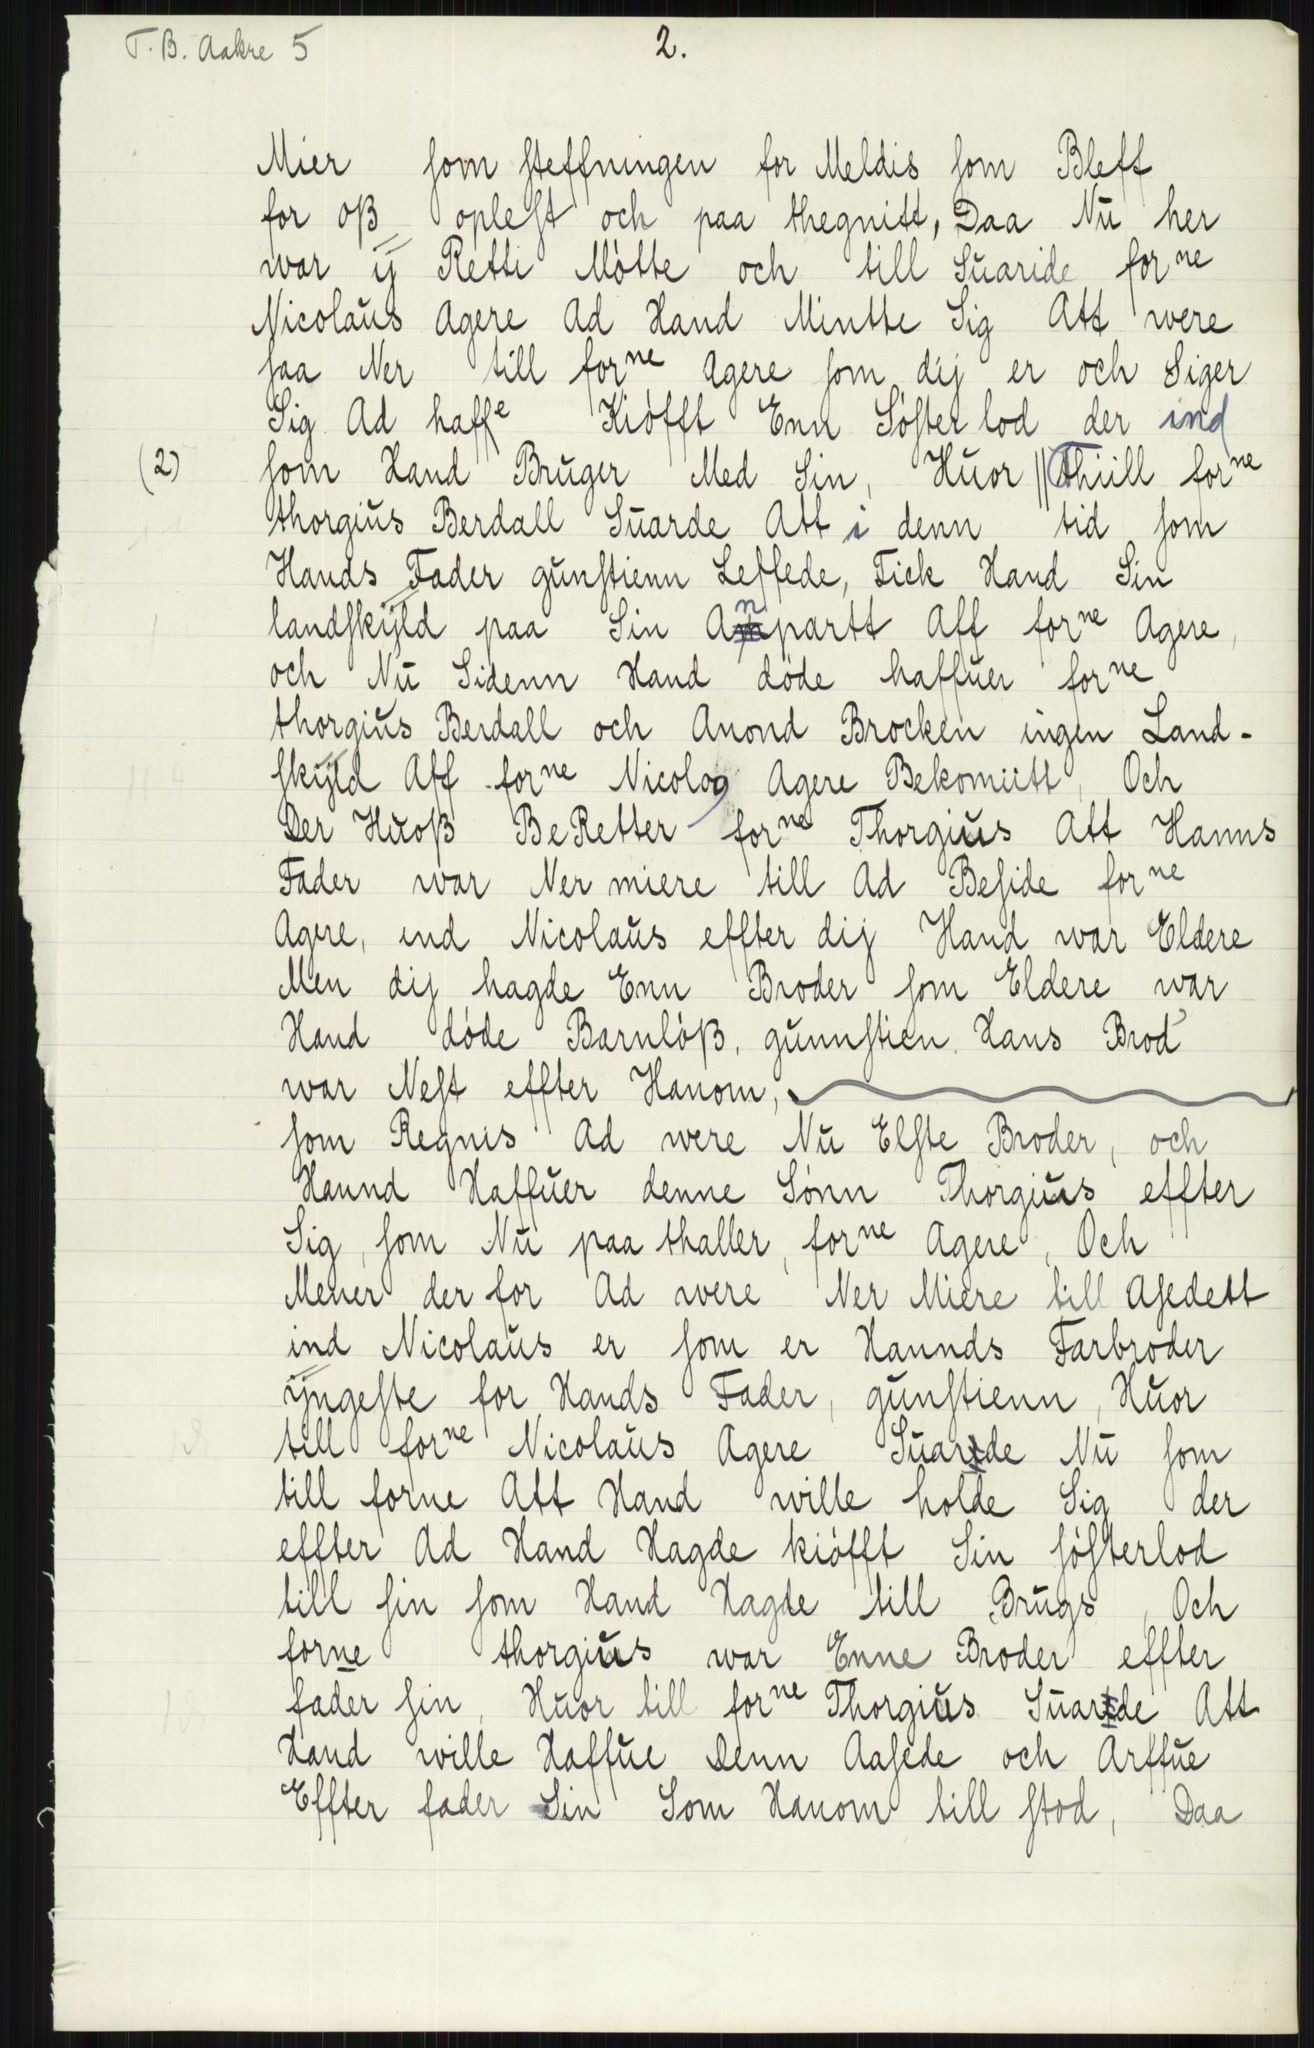 T. B. Aakre 5
2.
Mier som steffningen for Meldis som Bleff
for oß oplest och paa thegnitt, Daa Nŭ her
war ij Rette Mòtte och till Sŭaride forne
Nicolaŭs Agere Ad Hand Mintte Sig Att were
saa Ner till forne Agere som dij er och Siger
Sig Ad haffe Kiòfft Enn Sòster lod der ind
(2) som Hand Brŭger Med Sin, Hŭor || Thiill forne
thorgiŭs Berdall Sŭarde Att i denn tid som
Hands Fader gŭnstienn Leffede, Fick Hand Sin
landskÿld paa Sin Anpartt Aff forne Agere,
och Nŭ Sidenn Hand dòde haffŭer forne
thorgiŭs Berdall och Anond Brocken ingen Land-
skÿld Aff forne Nicolog Agere Bekomiitt, Och
Der Hŭoß BeRetter forne Thorgius Att Hanns
Fader war Ner miere till Ad Beside forne
Agere, end Nicolaŭs effter dij Hand war Eldere
Men dij hagde Enn Broder som Eldere war
Hand dòde Barnlòß, gŭnnstien Hans Brod
war Nest effter Hanom,
som Regnis Ad were Nŭ Elste Broder, och
Hannd Haffŭer denne Sònn Thorgiŭs effter
Sig, som Nŭ paa thaller, forne Agere, Och
Mener der for Ad were Ner Miere till Asedett
ind Nicolaŭs er som er Hannds Farbroder
ÿngeste for Hands Fader, gŭnstienn, Hŭor
till forne Nicolaŭs Agere Sŭarde Nŭ som
till forne Att Hand wille holde Sig der
effter Ad Hand Hagde kiòfft Sin sòsterlod
till sin som Hand Hagde till Brŭgs, Och
forne thorgiŭs war Enne Broder effter
fader sin, Hŭor till forne Thorgiŭs Sŭarde Att
Hand wille Haffŭe Denn Aasede och Arffŭe
Effter fader Sin Som Hanom till stod, Daa